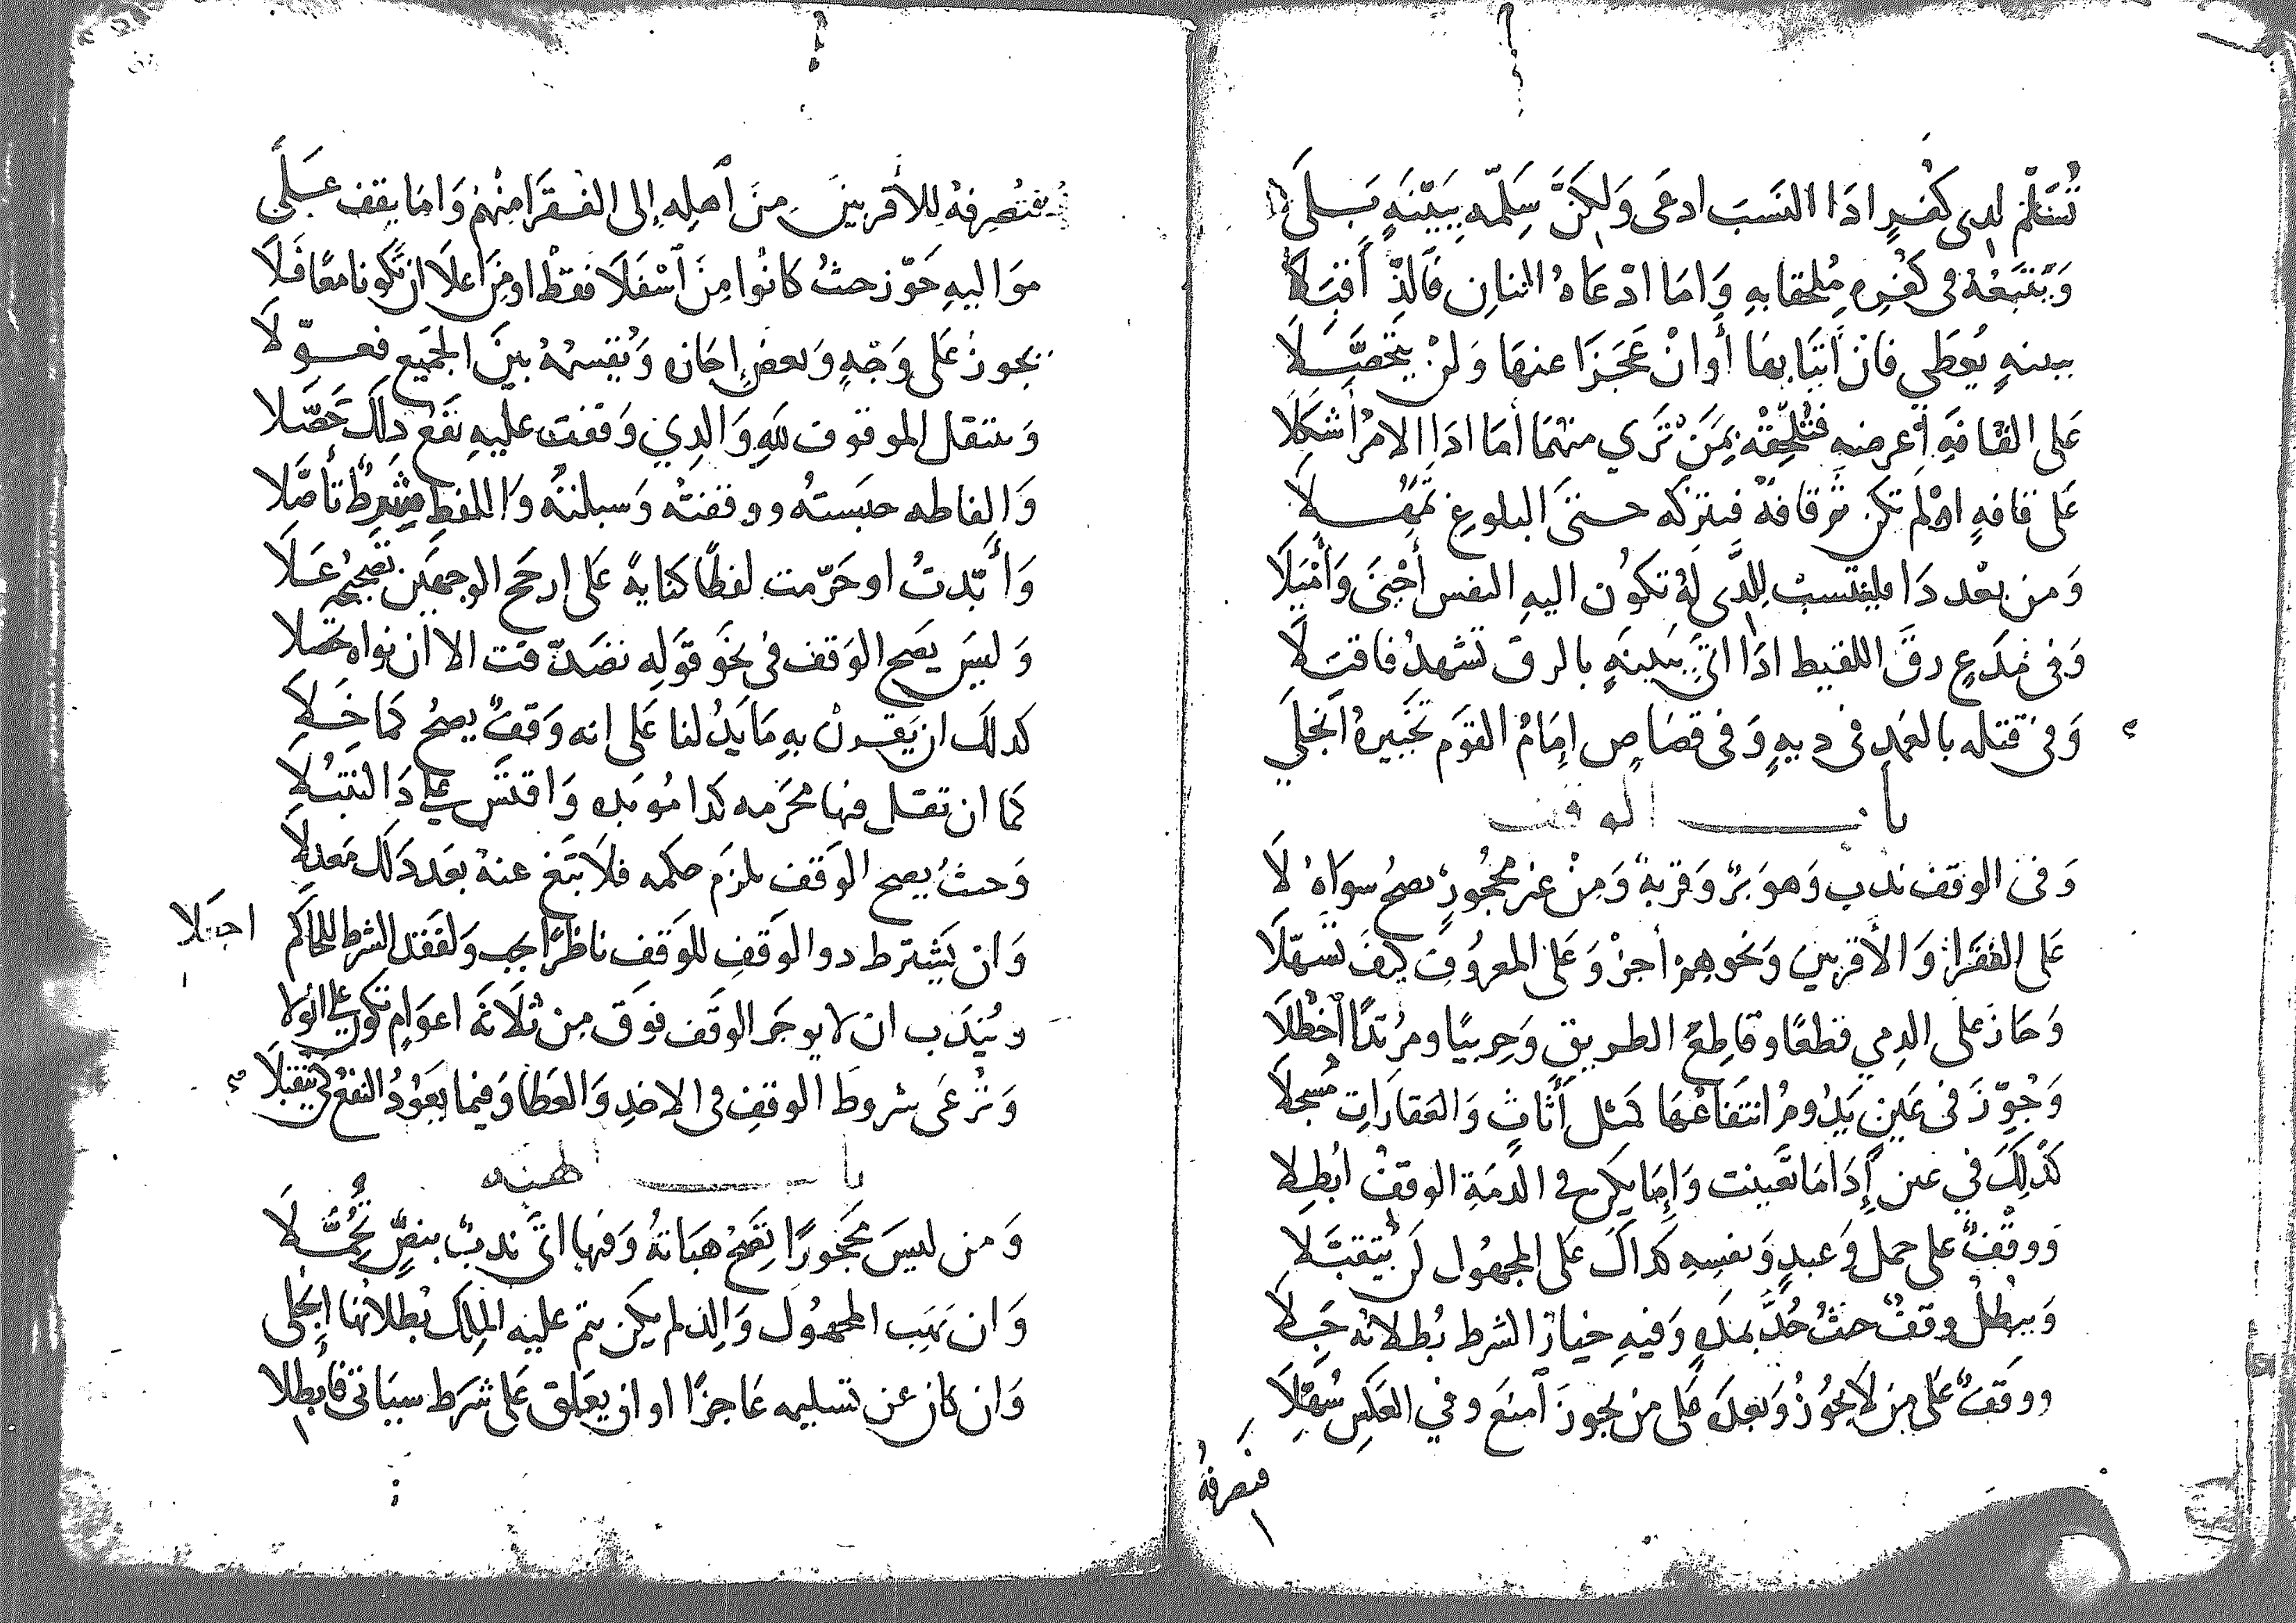 تُسَلِّم لدى كُفرٍ اذا النَسبَ ادعى وَلكنَّ سَلِّمه ببيّنَهٍ بَلَى
وَيَتبَعُهُ فى كُفْرِهِ مُلحقا بهِ وَامَا ادْعَاهُ اثنانِ فَالذ أَقبَلَا
ببينهٍ يُعطَى فانْ أتيَا بها أوانْ عَجَزَا عنهَا وَلنْ يتحَصَّلَا
عَلى القافَهِ أعرضنه فتُلحِقْه بِمَنْ تَرَي منهمَا أمَا اذَا الامرُ أشكَلَا
عَلى قافهٍ اوْلم تكن ثَم قافةٌ فنتركه حتى البلوغِ تمَهُّلَا
وَمن بعْد ذَا فلينتسبْ للذى لَهُ تكوُن اليهِ النفس أَحْيَى وَأمْيَلَا
وَفى مُدَعٍ رقَّ اللقيط اذَا اتَى ببَينهٍ بالرق تَشهدُ فاقبَلَا
وَفى قتله بالعَمدِ فى ديهٍ وَفى قصَاصٍ إمَامُ القوَم تَخييرهُ انجَلَي
بابـــ الوقف
وَفى الوقف ندب وَهوَ برٌ وَقربةٌ وَمنْ غير محجُورٍ يصحُ سوَاهُ لَا
عَلى الفقَرَا وَالأقربين وَنحوهِم أجزْ وَعَلى المعروُف كيفَ تسَهَّلَا
وَجازَ عَلى الذمي قطعًا وقاطعِ الطريق وَحربيًا ومرُتدًا احْظُلَا
وَجُوِّزَ فى عَينٍ يَدُومُ انتفَاعُهَا كمثل أثَاثٍ وَالعَقارَاتِ مُسجلَا
كذلِكَ في عين إذَا مَا تعَينت وَإمَا يكن فى الذمَةِ الوقفْ ابُطِلا
وَوقفٌ على حمل وَعبدٍ وَنفسِهِ كذاكَ عَلى المجهُول لن يُتقبَّلَا
وَيبْطُلْ وقفٌ حيثُ حُدَّ بمدهٍ وَفيهِ خيارُ الشرط بُطلانه جَلَا
ووقفٌ عَلى مَن لا يجُوزُ وَبعدَهُ عَلى من يجوزَ أمنعَ وفي العَكسِ سُهِّلَا
فنصرفهُ
فنصرفهُ للأقربينَ منَ اهلِه إلى الفقَرَا منهُم وَامَا يقف عَلَى
مَوَاليهِ جَوّز حيثُ كانُوا مِنَ اسْفلَا فقطْ او مِنَ اعلَا ان تكونَا معًا فَلَا
يجوزُ عَلى وَجْهٍ وَبعضٌ إجازه وَتُقسمهُ بينَ الجَميعِ فعوّلَا
وَينتقل الموقوف للهِ وَالذي وَقفتَ عليهِ نَفْعُ ذلكَ حَصَّلا
وَالفاظه حبَستهُ ووقفتهُ وَسبلتهُ وَاللفظ شرطٌ تأصَّلا
وَأَبّدتُ او حَرّمت لفظًا كنايهً عَلى ارجح الوجهَين تصحيحهُ عَلَا
وَليسَ يصَح الوَقف فى نَحَو قوَله تصَدّقت الا ان نواه تحصلا
كذلك ان يَقرنْ بهِ مَا يَدُلنا عَلى انه وَقفٌ يصحُ كمَا خَلَا
كما ان تقل فيها محرَمه كذا مُوبده وَاقتَسْ عَلى ذَا لتنْبُلَا
وَحيثُ يصح الوَقف يلزَم حكمه فلَا تبَغِ عنهُ بعَد ذَلك مَعدلَا
وَان يَشترط ذو الوَقفِ للوَقف ناظرًا يجب وَلفَقدِ الشرط للحَاكم
اجعَلا
ويُندَب ان لا يوجَر الوقَف فوَق مِن ثَلَاثَه اعوَامٍ تكون عَلى الوِلا
وَترُعَى شروط الوقفِ فى الاخذِ وَالعَطَا وَفيما يَعُودُ النفعُ كى يتقبلَا
بابـــ الهبه
وَمن ليسَ محجورًا تصَحْ هبَاتهُ وَفيها اتَى ندبٌ بنصٍّ تحَمَّلَا
وَان يَهَب المجهُولَ وَالذ لم يكن يتم عليه المِلك بُطلانُها إنجَلى
وَان كان عن تسليمه عَاجزًا او ان يعَلق عَلى شرَط سيَاتى فابطلا